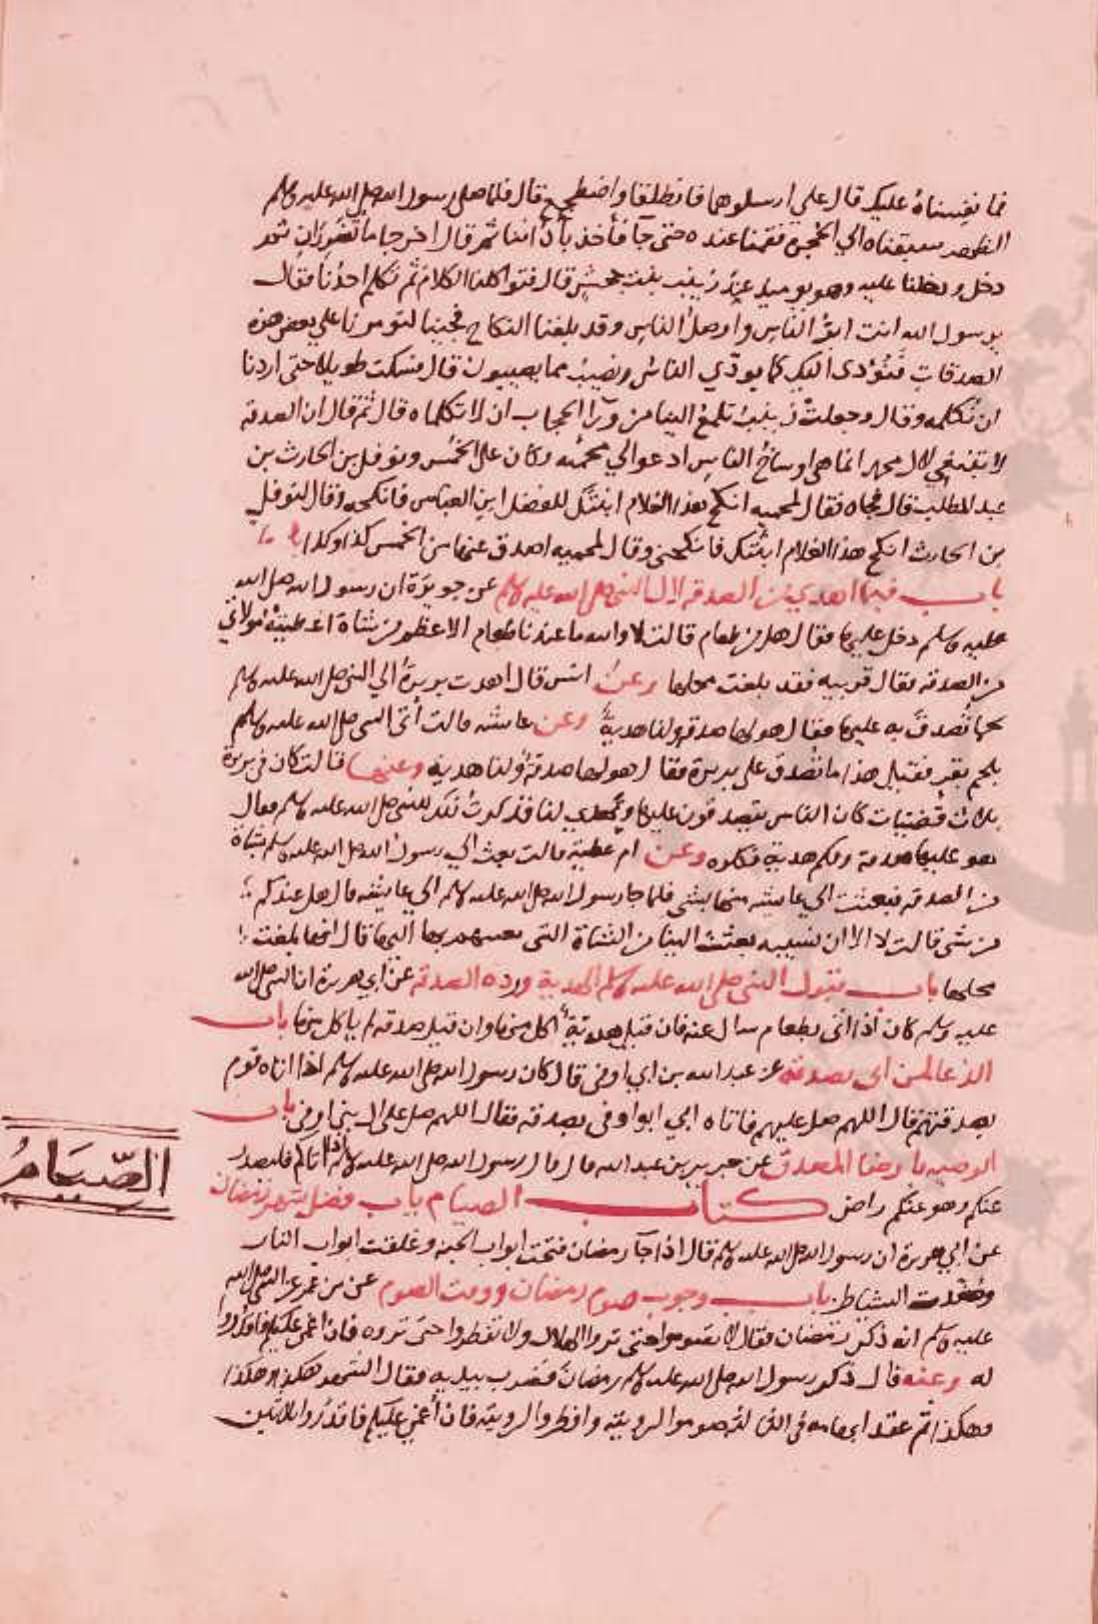 فما نفسناه عليك قال علي ارسلوهما فانطلقا واضطجع قال فلما صلى رسول الله صلى الله عليه وسلم
الظهر سبقناه الي الحجرة فقمنا عنده حتى جآ فأخذ بآذاننا ثم قال اخرجا ما تصرران ثم
دخل ودخلنا عليه وهو يوميذ عند زينب بنت جحش قال فتواكلنا الكلام ثم تكلم احدنا فقال
يرسول الله انت ابرُّ الناس واوصل الناس وقد بلغنا النكاح فجينا لتومرنا على بعض هذه
الصدقات فنُؤدى اليك كما يودّي الناس ونصيب مما يصيبون قال فسكت طويلا حتى اردنا
ان نُكلمه وقال وجعلتْ زينب تلمع الينا من ورآ الحجاب ان لا تكلماه قال ثم قال ان الصدقة
لا تنبغي لال محمد انما هي اوساخ الناس ادعوا لي محميه وكان على الخُمس ونوفل بن الحارث بن
عبد المطلب قال فجاه فقال لمحميه انكح هذا الغلام ابنتك للفضل ابن العباس فانكحه وقال لنوفل
بن الحارث انكح هذا الغلام ابنتك فانكحني وقال لمحميه اصدق عنهما من الخمس كذا وكذا
باب فيما اهدي من الصدقه لال النبي صلى الله عليه وسلم عن جويرة ان رسول الله صلى الله
عليه وسلم دخل عليها فقال هل من طعام قالت لا والله ما عندنا طعام الا عظم من شاة اعطيته مولاتي
من الصدقه فقال قربيه فقد بلغت محلها وعن انس قال اهدت بريرة الي النبي صلى الله عليه وسلم
لحما تُصدق به عليها فقال هو لها صدقه ولنا هديةٌ وعن عايشه قالت أتى النبي صلى الله عليه وسلم
بلحم بقر فقيل هذا ما تُصدق على بريرة فقال هو لها صدقة ولنا هدية وعنها قالت كان في بريرة
ثلاث قضيات كان الناس يتصدقون عليها وتُهدي لنا فذكرتُ ذلك للنبي صلى الله عليه وسلم فقال
هو عليها صدقة ولكم هدية فكلوه وعن ام عطية قالت بعث الي رسول الله صلى الله عليه وسلم بشاة
من الصدقه فبعثت الي عايشه منها بشي فلما جا رسول الله صلى الله عليه وسلم الى عايشه قال هل عندكم
من شي قالت لا الا ان نسيبه بعثت الينا من الشاة التي بعثتم بها اليها قال انها بلغت
محلها باب قبول النبي صلى الله عليه وسلم الهدية ورده الصدقه عن ابي هريرة ان النبي صلى الله
عليه وسلم كان اذا اتى بطعام سال عنه فان قيل هدية أكل منها وان قيل صدقه لم ياكل منها باب
الدعا لمن اتى بصدقته عن عبد الله بن ابي اوفى قال كان رسول الله صلى الله عليه وسلم اذا اتاه قوم
بصدقتهم قال اللهم صل عليهم فاتاه ابي ابو اوفى بصدقه فقال اللهم صل على ال بني اوفى باب
الوصيه بارضا المصدق عن جرير بن عبد الله قال قال رسول الله صلى الله عليه وسلم اذا اتاكم فليصدر
عنكم وهو عنكم راض كتاب الصيام باب فضل شهر رمضان
الصّيَامُ
عن ابي هريرة ان رسول الله صلى الله عليه وسلم قال اذا جآ رمضان فتحت ابواب الجنه وغلقت ابواب النار
وصُفدت الشياطين باب وجوب صوم رمضان ووقت الصوم عن بن عمر عن النبي صلى الله
عليه وسلم انه ذكر رمضان فقال لا تصوموا حتى تروا الهلال ولا تفطروا حتى تروه فان اغمي عليكم فاقدروا
له وعنه قال ذكر رسول الله صلى الله عليه وسلم رمضان فضرب بيديه فقال الشهر هكذا وهكذا
وهكذا ثم عقد ابهامه في الثالثه صوموا لرويته وافطروا لرويته فان أغمي عليكم فاقدُروا ثلاثين